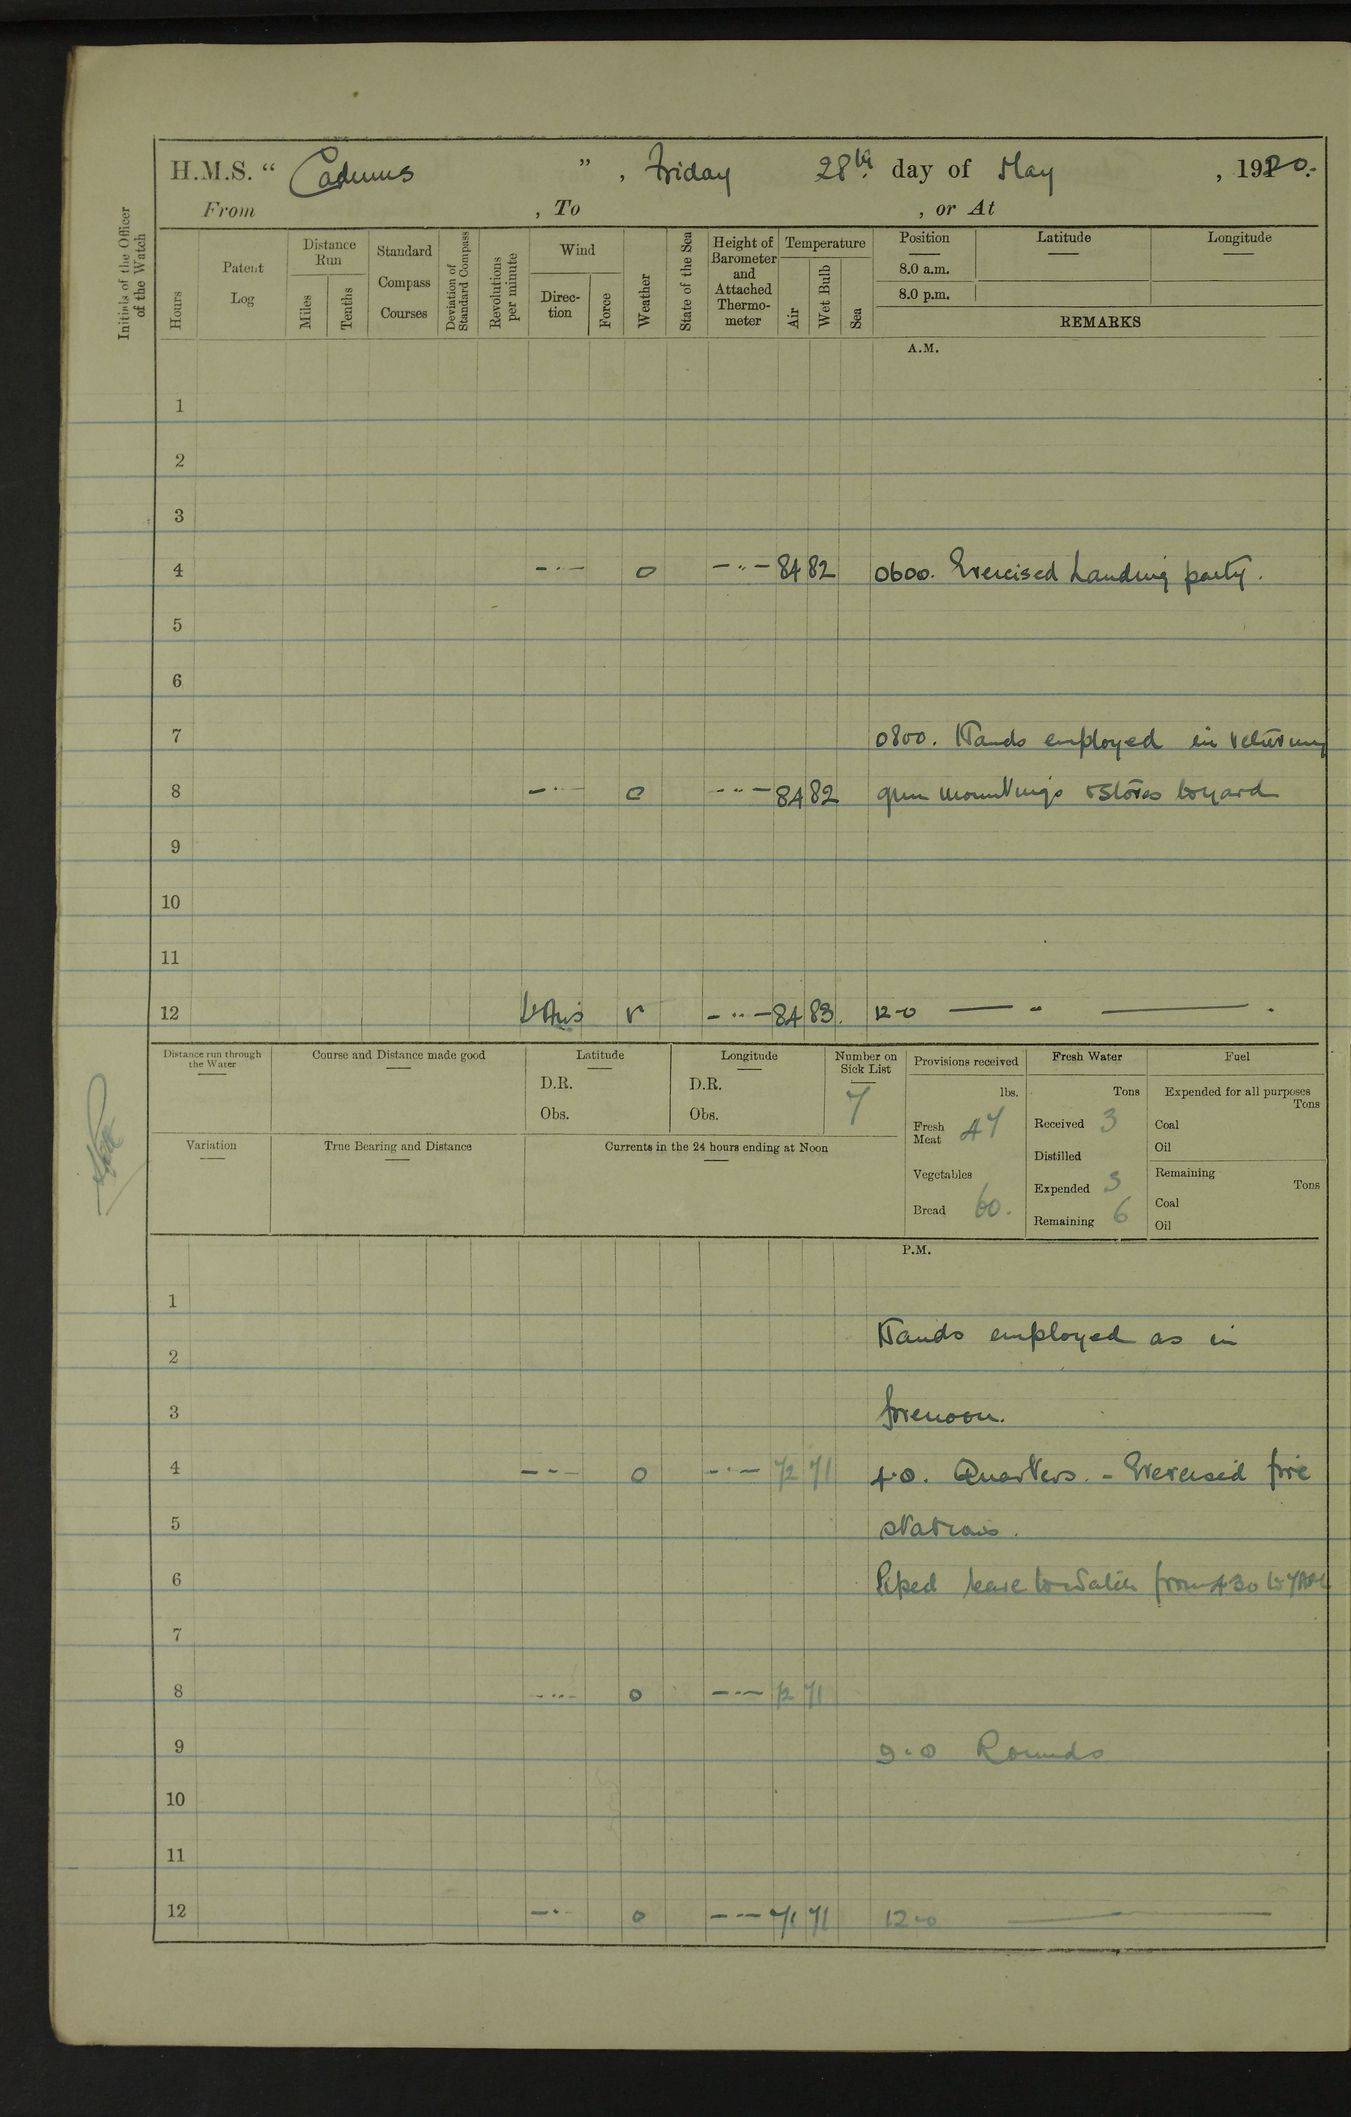 H.M.S. “ Cadmus ” , Friday 28th day of May , 1920.
From , To , or At
Initials of the Officer of the Watch
Hours
Patent Log
Distance Run
Miles
Tenths
Standard Compass Courses
Deviation of Standard Compass
Revolutions per minute
Wind
Direction
Force
Weather
State of the Sea
Height of Barometer and Attached Thermometer
Temperature
Air
Wet Bulb
Sea
Position Latitude Longitude
8.0 a.m.
8.0 p.m.
REMARKS
A.M.
1
2
3
4 — · · — o — · · — 84 82 0600. Exercised Landing party.
5
6
7 0800. Hands employed in returning
8 — · · — o — · · — 84 82 gun mountings & stores to yard
9
10
11
12 r — · · — 84 83. 12-0 — " —
Distance run through the Water
Course and Distance made good
Latitude
D.R.
Obs.
Longitude
D.R.
Obs.
Number on Sick List
7
Variation
True Bearing and Distance
Currents in the 24 hours ending at Noon
Provisions received
lbs.
Fresh Meat 47
Vegetables
Bread 60.
Fresh Water
Tons
Received 3
Distilled
Expended 3
Remaining 6
Fuel
Expended for all purposes
Tons
Coal
Oil
Remaining
Tons
Coal
Oil
P.M.
1
Hands employed as in
2
3 forenoon.
4 — · · — o — · · — 72 71 4.0. Quarters. - Exercised fire
5 stations.
6 Piped leave to from 430 to 7AM
7
8 — · · — o — · · — 72 71
9 9.0 Rounds
10
11
12 — · · — o — · · — 71 71 12-0 —